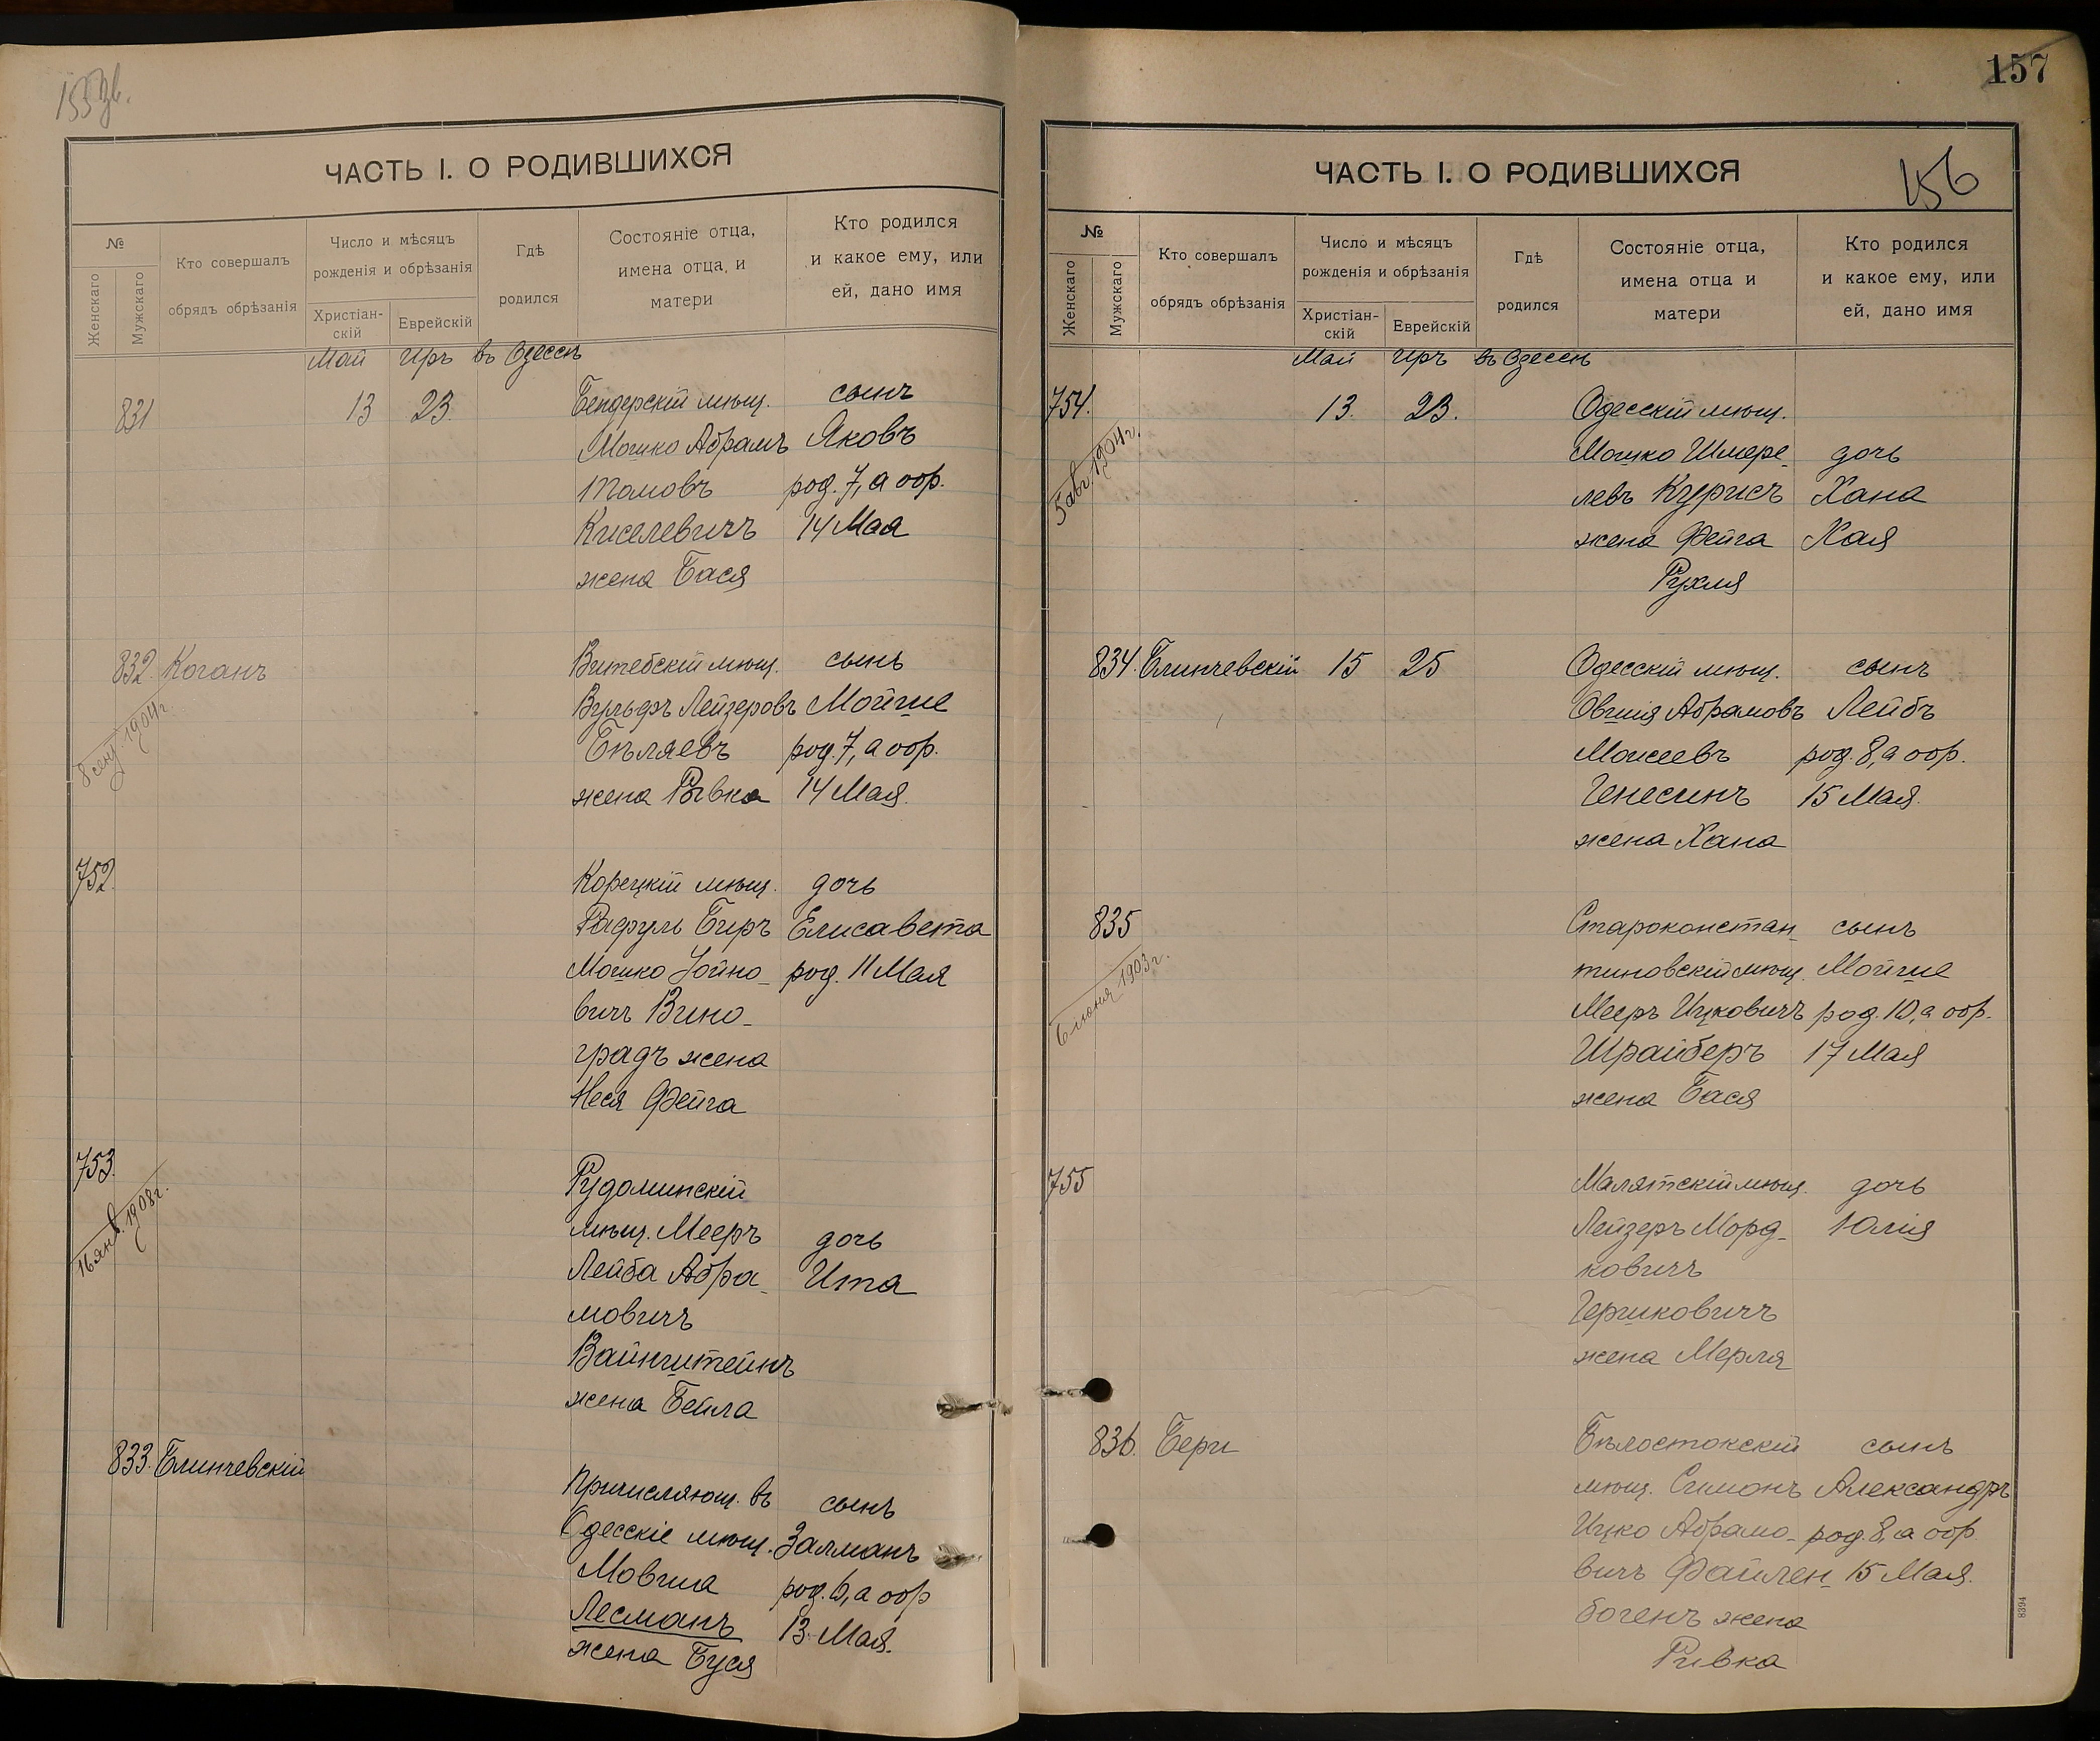 ЧАСТЬ I. О РОДИВШИХСЯ
№
Женскаго
Мужскаго
Кто совершалъ
обрядъ обрѣзанія
Число и мѣсяцъ
рожденія и обрѣзанія
Христіан-
скій
Еврейскій
Гдѣ
родился
Состояніе отца,
имена отца, и
матери
Кто родился
и какое ему, или
ей, дано имя
Май Иръ въ Одессѣ
831 13 23. Бендерскій мѣщ. сынъ
Мошко Абрамъ Яковъ
род. 7, а обр.
Киселевичъ 14 Мая
жена Бася
832. Коганъ Витебскій мѣщ. сынъ
8 1904 г.
Вульфъ Лейзеровъ Мойше
Бѣляевъ род. 7, а обр.
жена Рывка 14 Мая.
752. Корецкій мѣщ. дочь
Рафуль Беръ Елисавета
Мошко Іойно- род. 11 Мая
вичъ Вино-
градъ жена
Неся Фейга
753.
16 янв. 1908 г.
Рудоминскій
мѣщ. Мееръ дочь
Лейба Абра- Ита
мовичъ
Вайнштейнъ
жена Бейла
833. Блинчевскій
Причисляющ. въ сынъ
Одесскіе мѣщ. Залманъ
Мовша род. 6, а обр
Лесманъ 13 Мая.
жена Буся
157
156
ЧАСТЬ I. О РОДИВШИХСЯ
№
Женскаго
Мужскаго
Кто совершалъ
обрядъ обрѣзанія
Число и мѣсяцъ
рожденія и обрѣзанія
Христіан-
скій
Еврейскій
Гдѣ
родился
Состояніе отца,
имена отца и
матери
Кто родился
и какое ему, или
ей, дано имя
Май Иръ въ Одессѣ
754. 13. 23. Одесскій мѣщ.
5 авг. 1904 г.
Мошко Шмере- дочь
левъ Курисъ Хана
жена Фейга Хая
Рухля
834. Блинчевскій 15 25 Одесскій мѣщ. сынъ
Овшія Абрамовъ Лейбъ
Моисеевъ род. 8, а обр.
Генесинъ 15 Мая.
жена Хана
835 Староконстан- сынъ
6 іюня 1903 г.
тиновскій мѣщ. Мойше
Мееръ Ицковичъ род. 10, а обр.
Шрайберъ 17 Мая
жена Бася
755 Малятскій мѣщ. дочь
Лейзеръ Морд- Юлія
ковичъ
Гершковичъ
жена Мерля
836. Берг Бѣлостокскій сынъ
мѣщ. Симонъ Александръ
Ицко Абрамо- род. 8, а обр.
вичъ Файлен- 15 Мая.
богенъ жена
Ривка
8394